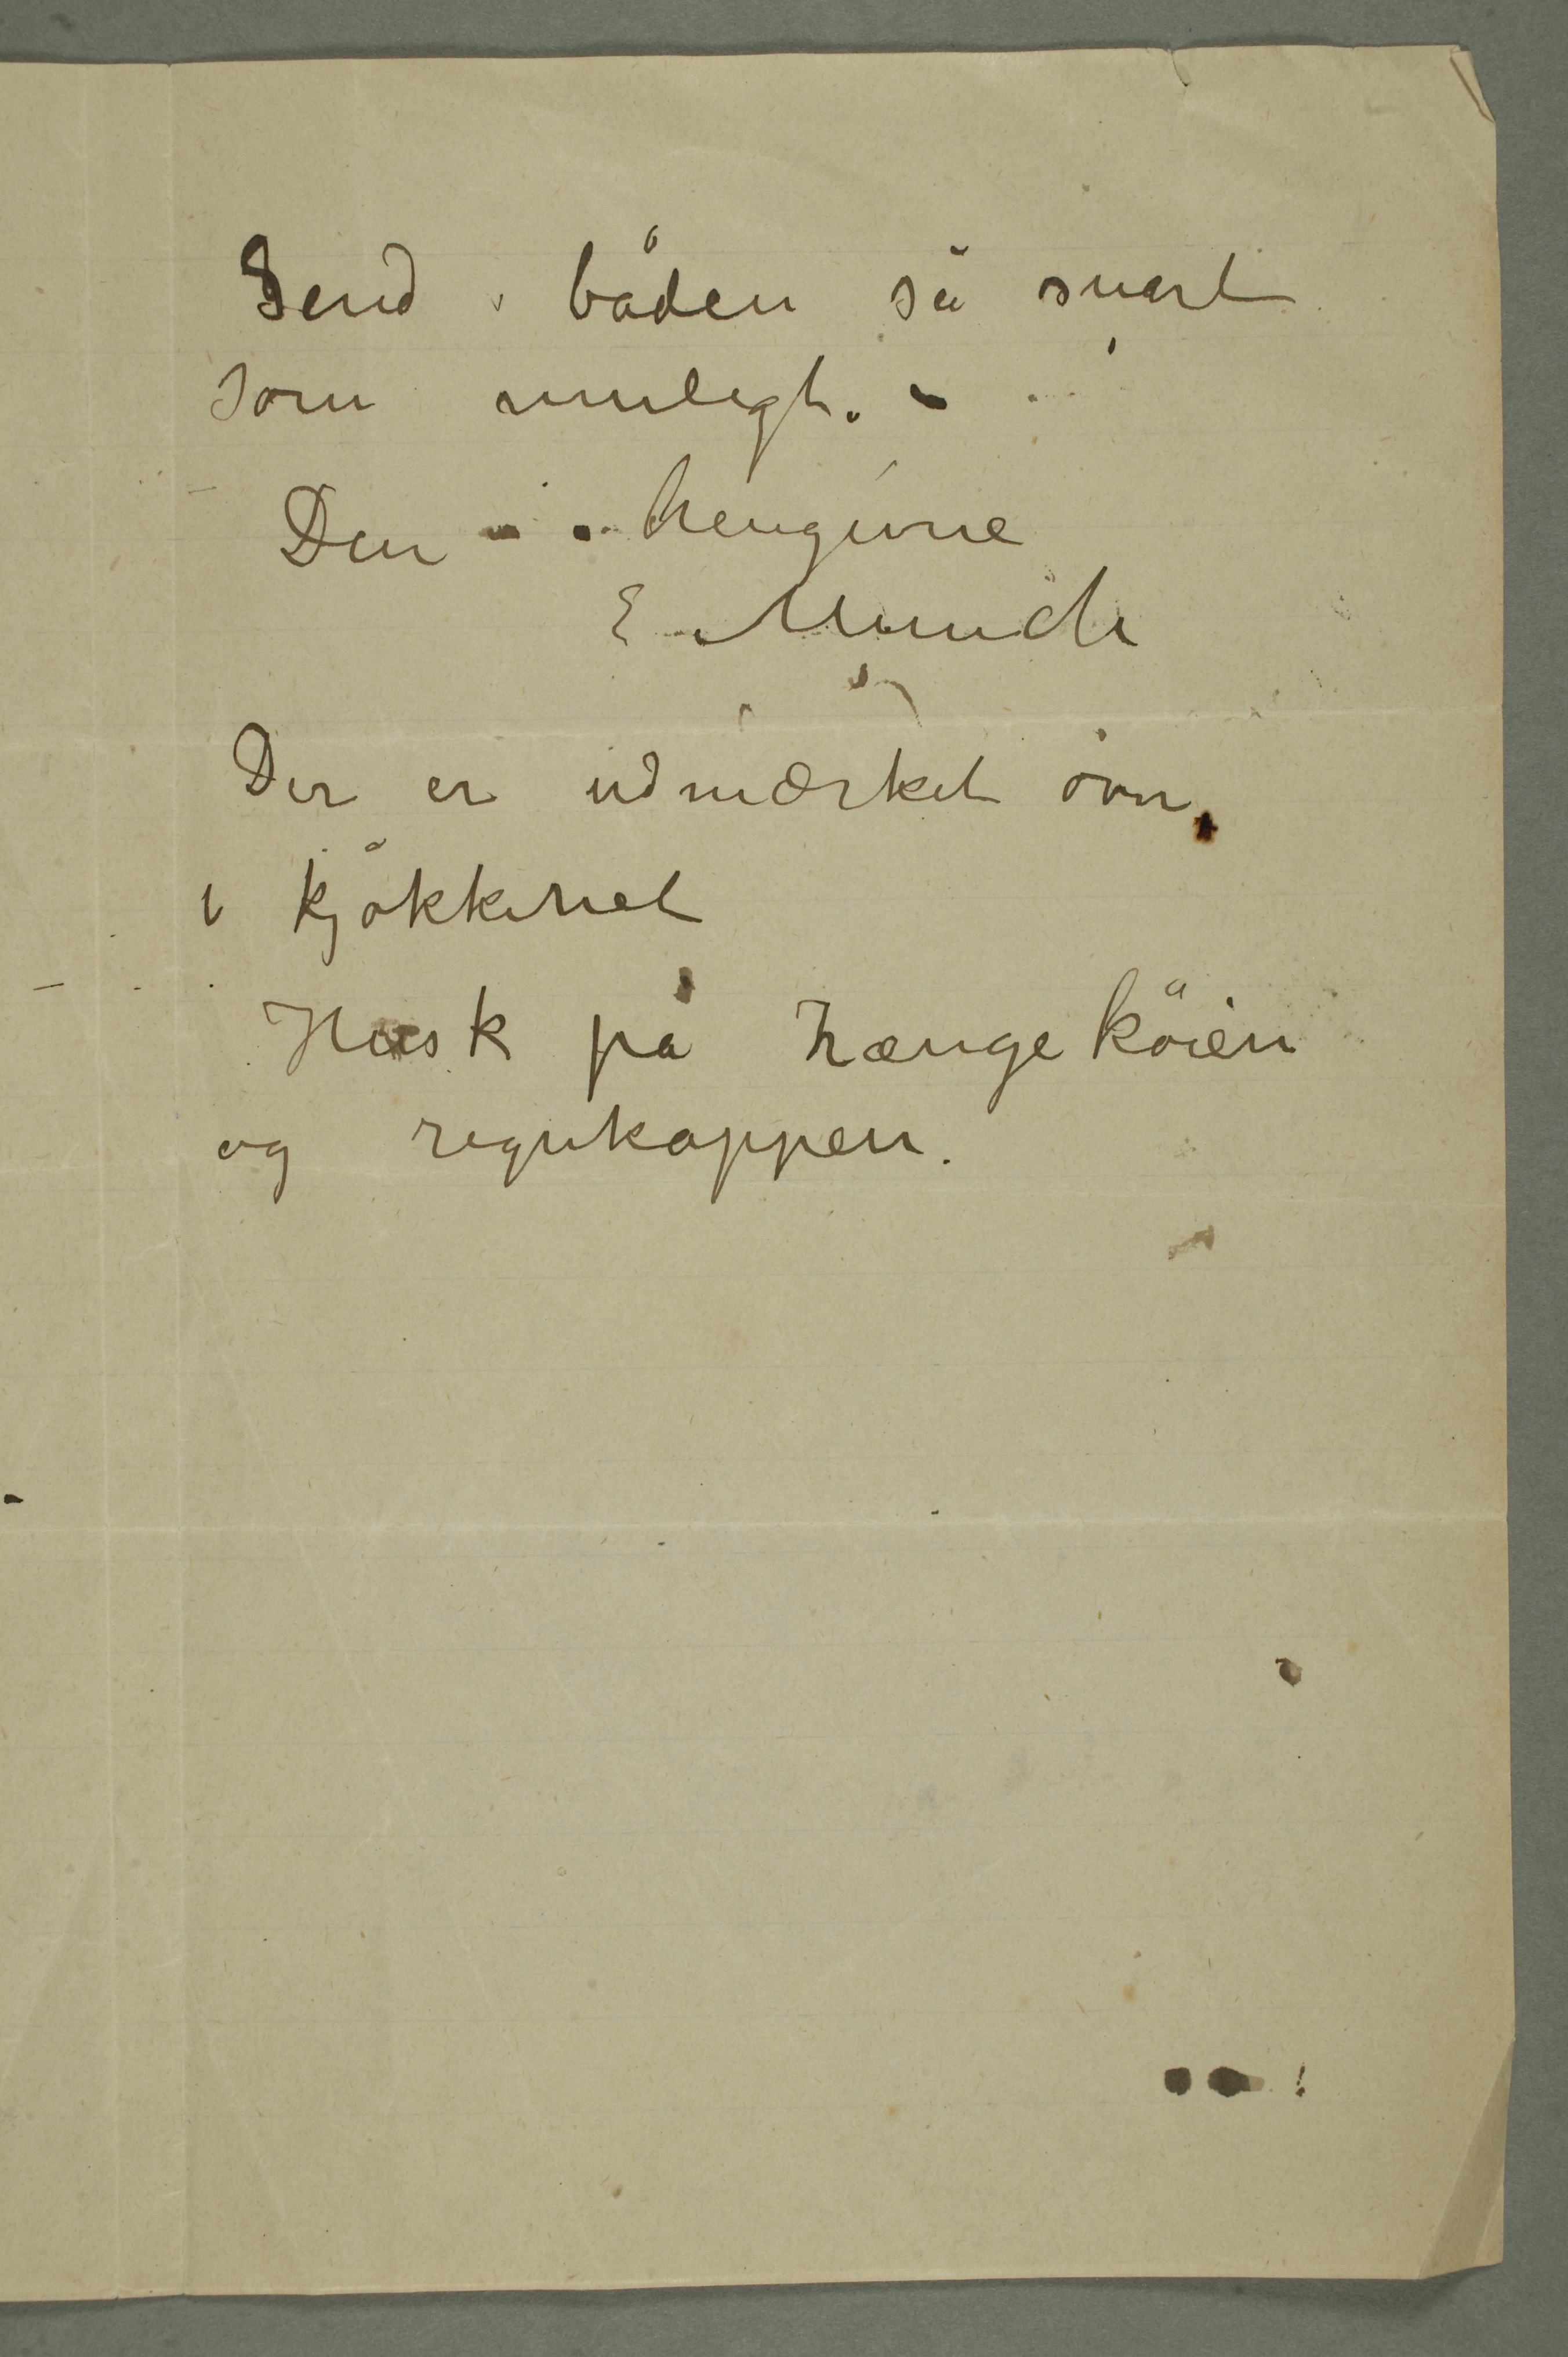 Send båden så snart
som muligt. –
Din hengivne
E Munch
Der er udmærket ovn
i kjökkenet
Husk på hængeköien
og regnkappen.